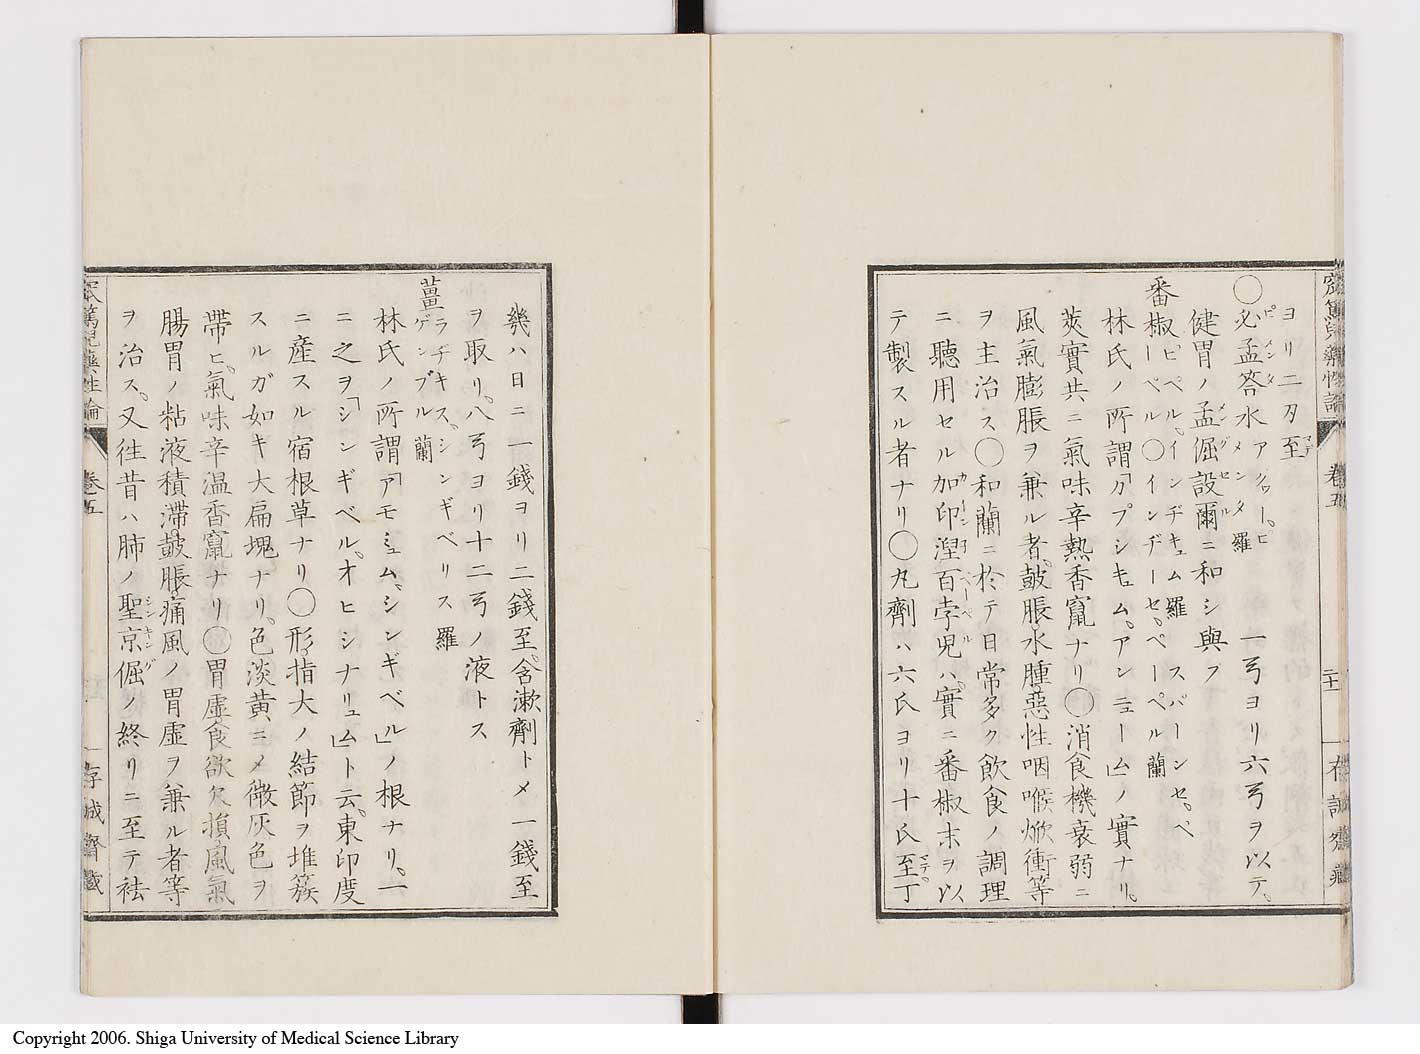 ヨリ二刄至
〇必孟答水 アクワー、ピメンタ 羅 一弓ヨリ六弓ヲ以テ、
健胃ノ孟倔設爾ニ和シ與フ
番椒 ピペル、インヂキュム 羅 スパーンセ、ペーペル〇インデーセ、ペーペル 蘭
林氏ノ所謂「カプシキュム、アンニューム」ノ實ナリ、
莢實共ニ氣味辛熱香竄ナリ〇消食機衰弱ニ
風氣膨脹ヲ兼ル者、皷脹、水腫、惡性咽喉焮衝等
ヲ主治ス〇和蘭ニ於テ日常多ク飲食ノ調理
ニ聽用セル加印湼百孛児ハ、實ニ番椒末ヲ以
テ製スル者ナリ〇丸劑ハ六氏ヨリ十氏至丁
幾ハ日ニ一錢ヨリ二錢至、含漱劑トメ一錢至
ヲ取リ、八弓ヨリ十二弓ノ液トス
薑 ラヂキス、シンギベリス 羅 ゲンブル 蘭
林氏ノ所謂「アモミュム、シンギベル」ノ根ナリ、一
ニ之ヲ「シンギベル、オヒシナリュム」ト云、東印度
ニ産スル宿根草ナリ〇形、指大ノ結節ヲ堆簇
スルガ如キ大扁塊ナリ、色淡黄ニメ微灰色ヲ
帶ヒ、氣味辛温香竄ナリ〇胃虛食欲欠損、風氣
腸胃ノ粘液積滯、皷脹、痛風ノ胃虛ヲ兼ル者等
ヲ治ス、又徃昔ハ肺ノ聖京倔ノ終リニ至テ祛
窊篤兒藥性論 卷五 二十一 存誠齋藏